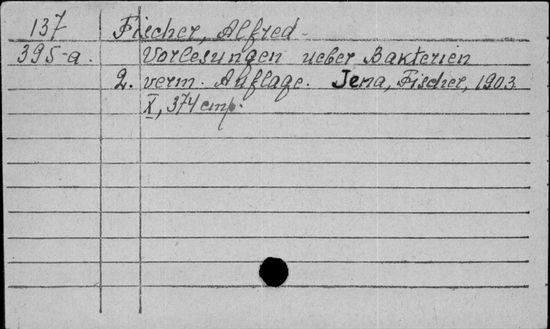 137 Fischer, Alfred.
395-a. Vorlesungen ueber Bakterien
2. verm. Auflage. Jena, Fischer, 1903.
X, 374 cmp.